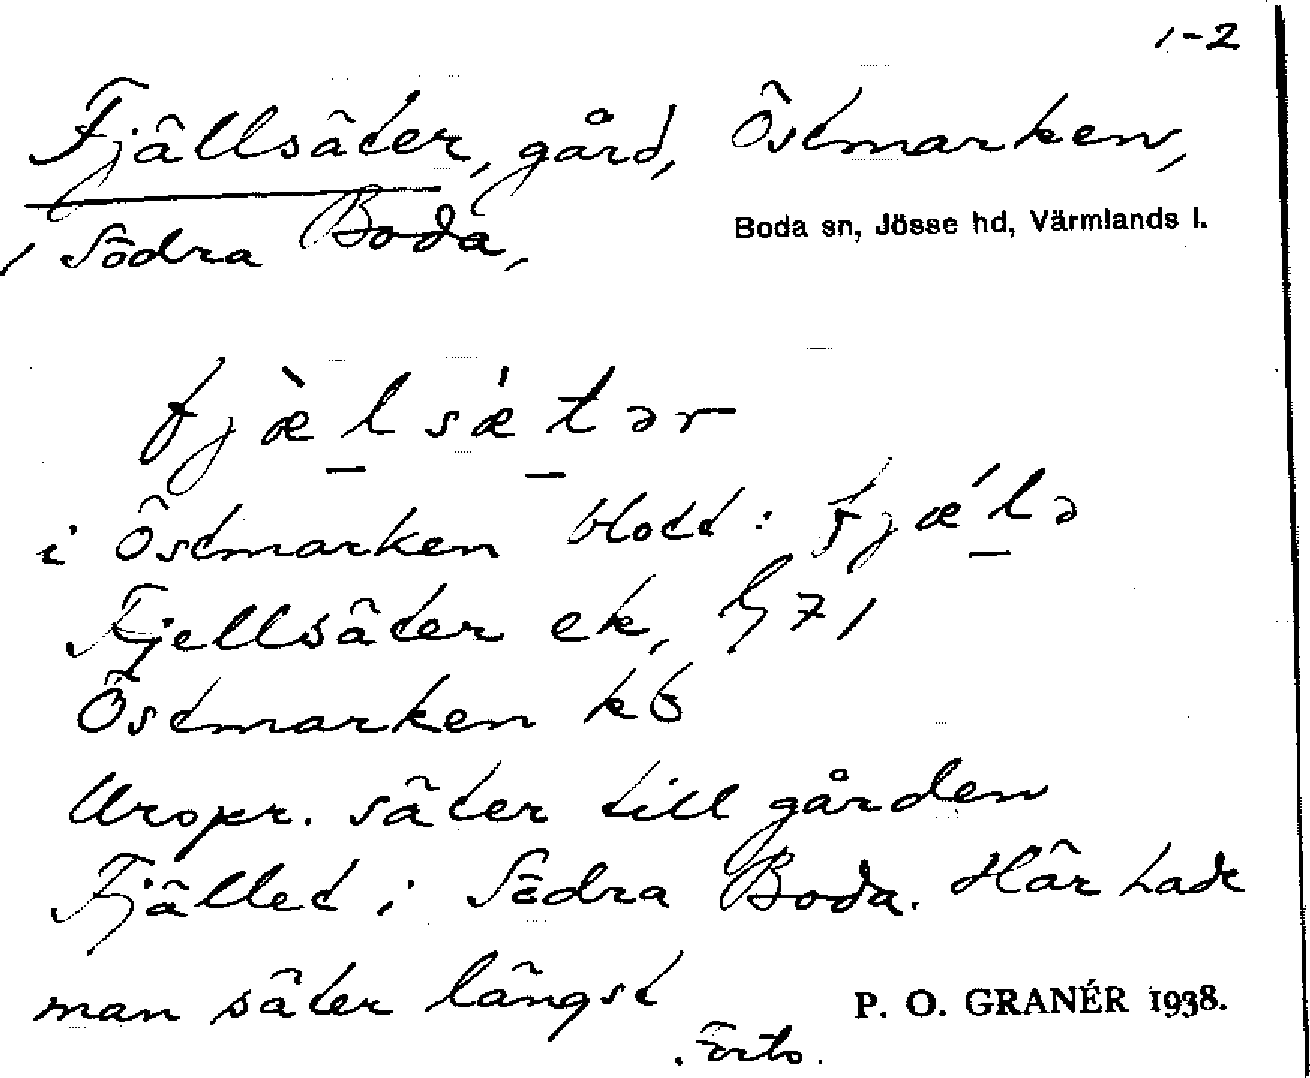 1-2
Fjällsäter, gård, Östmarken,
/ Södra Boda,
Boda sn, Jösse hd, Värmlands l.
fjæ̀l sǽtər
i Östmarken blott: fjǽlə
Fjellsäter ek, 71
Östmarken kb
Urspr. säter till gården
Fjället i Södra Boda. Här hade
man säter längst
P. O. GRANÉR 1938.
Forts.